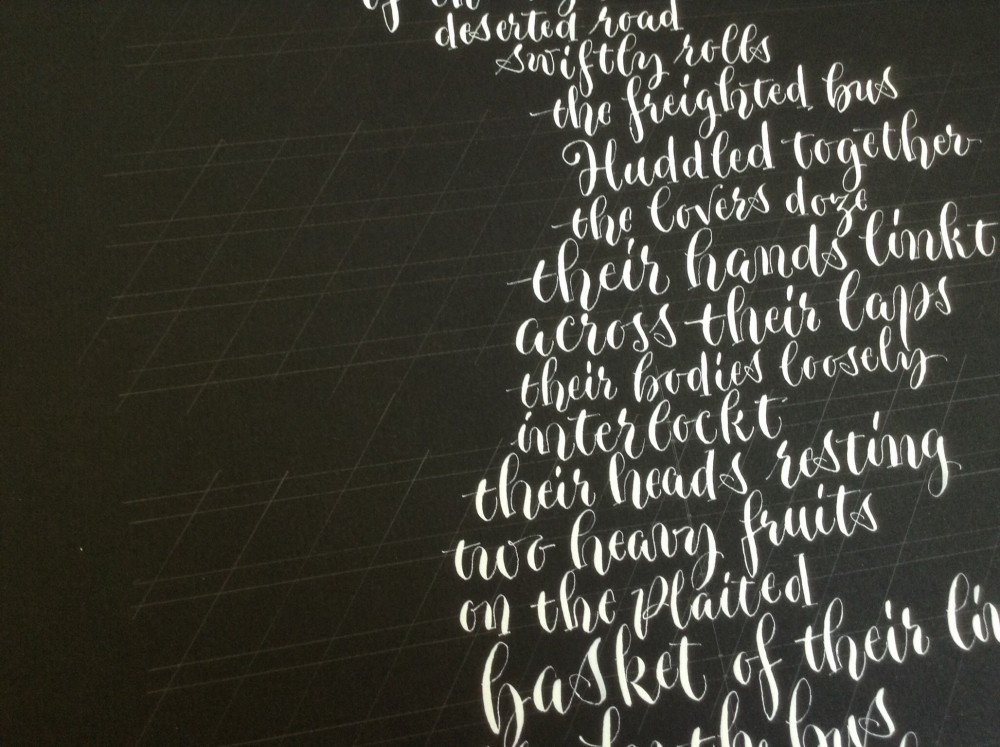 of
deserted road
swiftly rolls
the freighted bus
Huddled together
the lovers doze
their hands linkt
across their laps
their bodies loosely
interlockt
their heads resting
two heavy fruits
on the plaited
basket of their
the bus